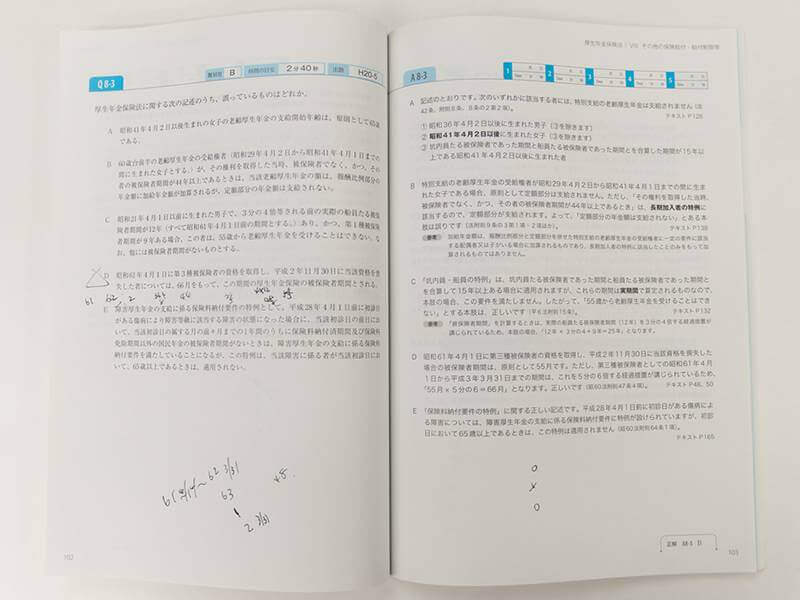 Q8-3
難易度 B 時間の目安 2分40秒 出題 H20-5
厚生年金保険法に関する次の記述のうち、誤っているものはどれか。
A 昭和41年4月2日以後生まれの女子の老齢厚生年金の支給開始年齢は、原則として65歳
である。
B 60歳台前半の老齢厚生年金の受給権者(昭和29年4月2日から昭和41年4月1日までの
間に生まれた女子とする。)が、その権利を取得した当時、被保険者でなく、かつ、その
者の被保険者期間が44年以上であるときは、当該老齢厚生年金の額は、報酬比例部分の
年金額に加給年金額が加算されるが、定額部分の年金額は支給されない。
C 昭和21年4月1日以前に生まれた男子で、3分の4倍等される前の実際の船員たる被保
険者期間が12年(すべて昭和61年4月1日前の期間とする。)あり、かつ、第1種被保険
者期間が9年ある場合、この者は、55歳から老齢厚生年金を受けることはできない。な
お、他には被保険者期間がないものとする。
D 昭和62年4月1日に第3種被保険者の資格を取得し、平成2年11月30日に当該資格を喪
失した者については、66月をもって、この期間の厚生年金保険の被保険者期間とされる。
61 62,2
E 障害厚生年金の支給に係る保険料納付要件の特例として、平成28年4月1日前に初診日
がある傷病により障害等級に該当する障害の状態になった場合に、当該初診日の前日に
おいて、当該初診日の属する月の前々月までの1年間のうちに保険料納付済期間及び保険料
免除期間以外の国民年金の被保険者期間がないときは、障害厚生年金の支給に係る保険料
納付要件を満たしていることになるが、この特例は、当該障害に係る者が当該初診日にお
いて、65歳以上であるときは、適用されない。
61 4/1~62 3/31
63
2 3/31
102
厚生年金保険法 | VIII その他の保険給付・給付制限等
A8-3
1 2 3 4 5
A 記述のとおりです。次のいずれかに該当する者には、特別支給の老齢厚生年金は支給されません(法
42条、附則8条、8条の2第2項)。
テキストP128
① 昭和36年4月2日以後に生まれた男子(③を除きます)
② 昭和41年4月2日以後に生まれた女子(③を除きます)
③ 坑内員たる被保険者であった期間と船員たる被保険者であった期間とを合算した期間が15年以
上である昭和41年4月2日以後に生まれた者
B 特別支給の老齢厚生年金の受給権者が昭和29年4月2日から昭和41年4月1日までの間に生ま
れた女子である場合、原則として定額部分は支給されません。ただし、「その権利を取得した当時、
被保険者でなく、かつ、その者の被保険者期間が44年以上であるとき」は、長期加入者の特例に
該当するので、定額部分が支給されます。よって、「定額部分の年金額は支給されない」とある本
肢は誤りです(法附則9条の3第1項・2項ほか)。
テキストP138
参考 加給年金額は、報酬比例部分と定額部分を併せた特別支給の老齢厚生年金の受給権者に一定の要件に該当
する配偶者又は子がいる場合に加算されるものであり、長期加入者の特例に該当したことのみをもって加
算されるものではありません。
C 「坑内員・船員の特例」は、坑内員たる被保険者であった期間と船員たる被保険者であった期間と
を合算して15年以上ある場合に適用されますが、これらの期間は実期間で算定されるものなので、
本肢の場合、この要件を満たしません。したがって、「55歳から老齢厚生年金を受けることはでき
ない」とする本肢は、正しいです(平6法附則15条)。
テキストP132
参考 「被保険者期間」を計算するときは、実際の船員たる被保険者期間(12年)を3分の4倍する経過措置が
講じられているため、本肢の場合、「12年×3分の4+9年=25年」となります。
D 昭和61年4月1日に第三種被保険者の資格を取得し、平成2年11月30日に当該資格を喪失した
場合の被保険者期間は、原則として55月です。ただし、第三種被保険者としての昭和61年4月
1日から平成3年3月31日までの期間は、これを5分の6倍する経過措置が講じられているため、
「55月×5分の6=66月」となります。正しいです(昭60法附則47条4項)。
テキストP46、50
E 「保険料納付要件の特例」に関する正しい記述です。平成28年4月1日前に初診日がある傷病によ
る障害については、障害厚生年金の支給に係る保険料納付要件に特例が設けられていますが、初診
日において65歳以上であるときは、この特例は適用されません(昭60法附則64条1項)。
テキストP165
○
×
○
正解 8-3 B
103